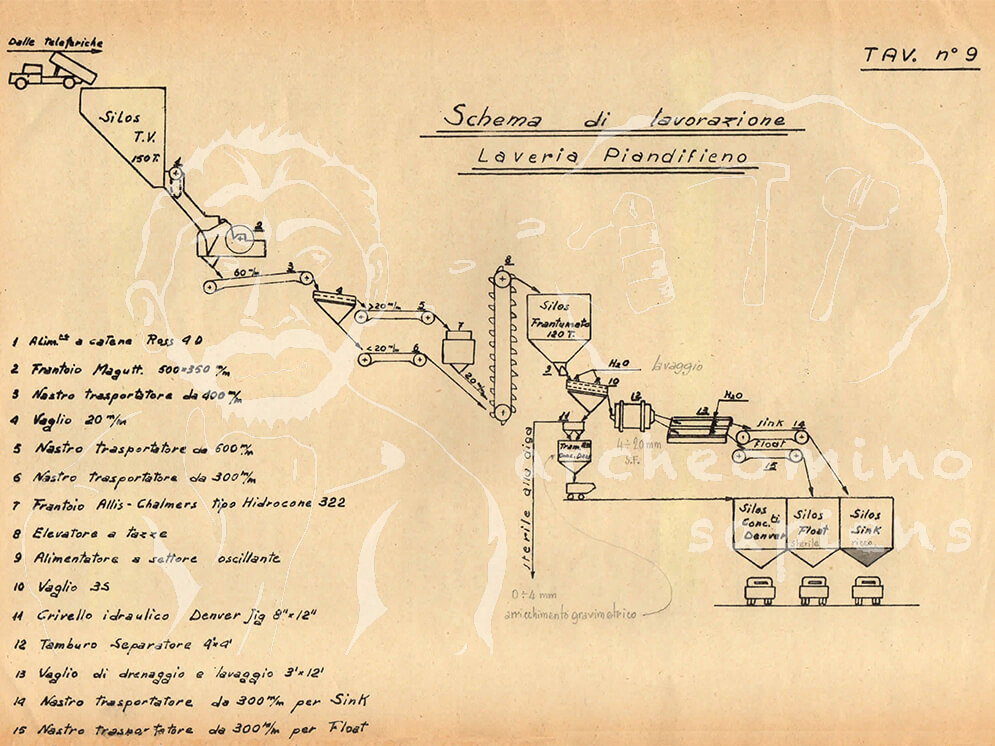 Dalle teleferiche
TAV. n° 9
Schema di lavorazione
Laveria Piandifieno
Silos
T.V.
150T.
1
2
60 m/m
3
4
>20 m/m
5
<20 m/m
6
7
20 m/m
8
Silos
Frantumato
120T.
9
H2O
lavaggio
10
11
12
4÷20 mm
S.F.
13
H2O
sink
14
Float
15
Tram.
Conc. Den.
sterile alla diga
0÷4 mm
arricchimento gravimetrico
Silos
Conc.ti
Denver
Silos
Float
sterile
Silos
Sink
ricco
1 Alim.re a catene Ross 4D
2 Frantoio Magutt. 500×350 m/m
3 Nastro trasportatore da 400 m/m
4 Vaglio 20 m/m
5 Nastro trasportatore da 600 m/m
6 Nastro trasportatore da 300 m/m
7 Frantoio Allis-Chalmers tipo Hidrocone 322
8 Elevatore a tazze
9 Alimentatore a settore oscillante
10 Vaglio 3S
11 Crivello idraulico Denver Jig 8"×12"
12 Tamburo Separatore 4'×4'
13 Vaglio di drenaggio e lavaggio 3'×12'
14 Nastro trasportatore da 300 m/m per Sink
15 Nastro trasportatore da 300 m/m per Float
archeomino
sapiens